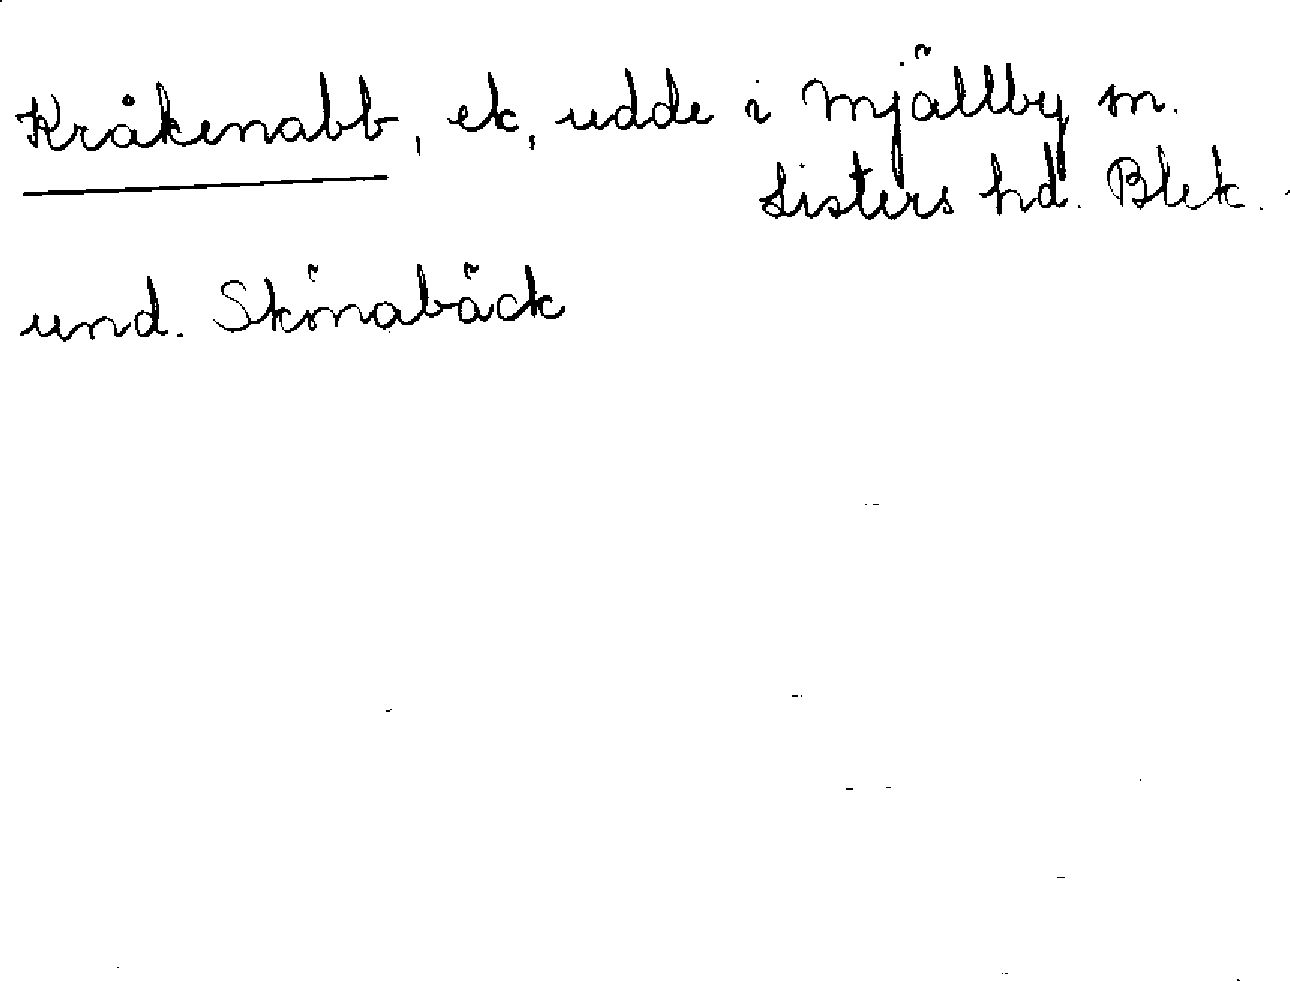 Kråkenabb, ek, udde i Mjällby sn.
Listers hd. Blek.
und. Skönabäck